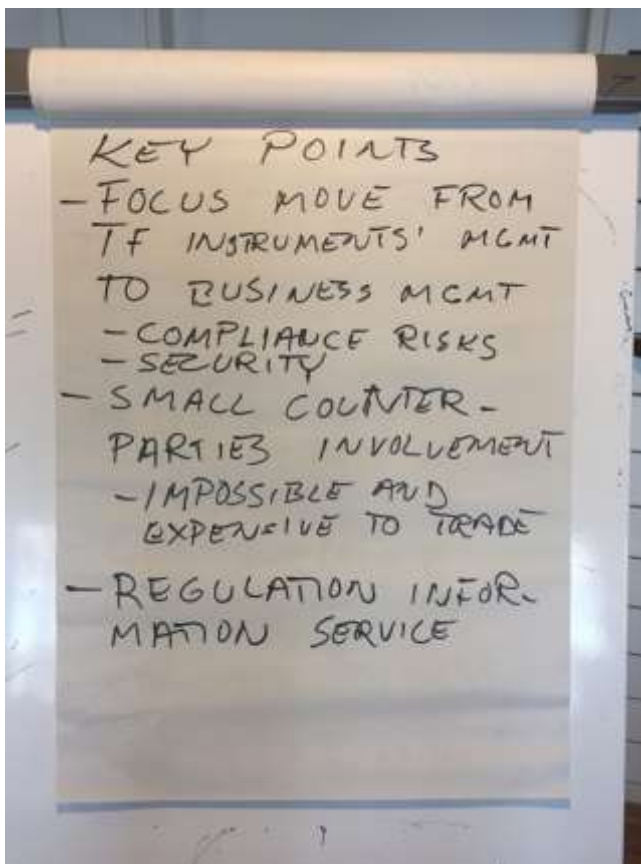 KEY POINTS
- FOCUS MOVE FROM
TF INSTRUMENTS' MGMT
TO BUSINESS MGMT
- COMPLIANCE RISKS
- SECURITY
- SMALL COUNTER-
PARTIES INVOLVEMENT
- IMPOSSIBLE AND
EXPENSIVE TO TRADE
- REGULATION INFOR-
MATION SERVICE